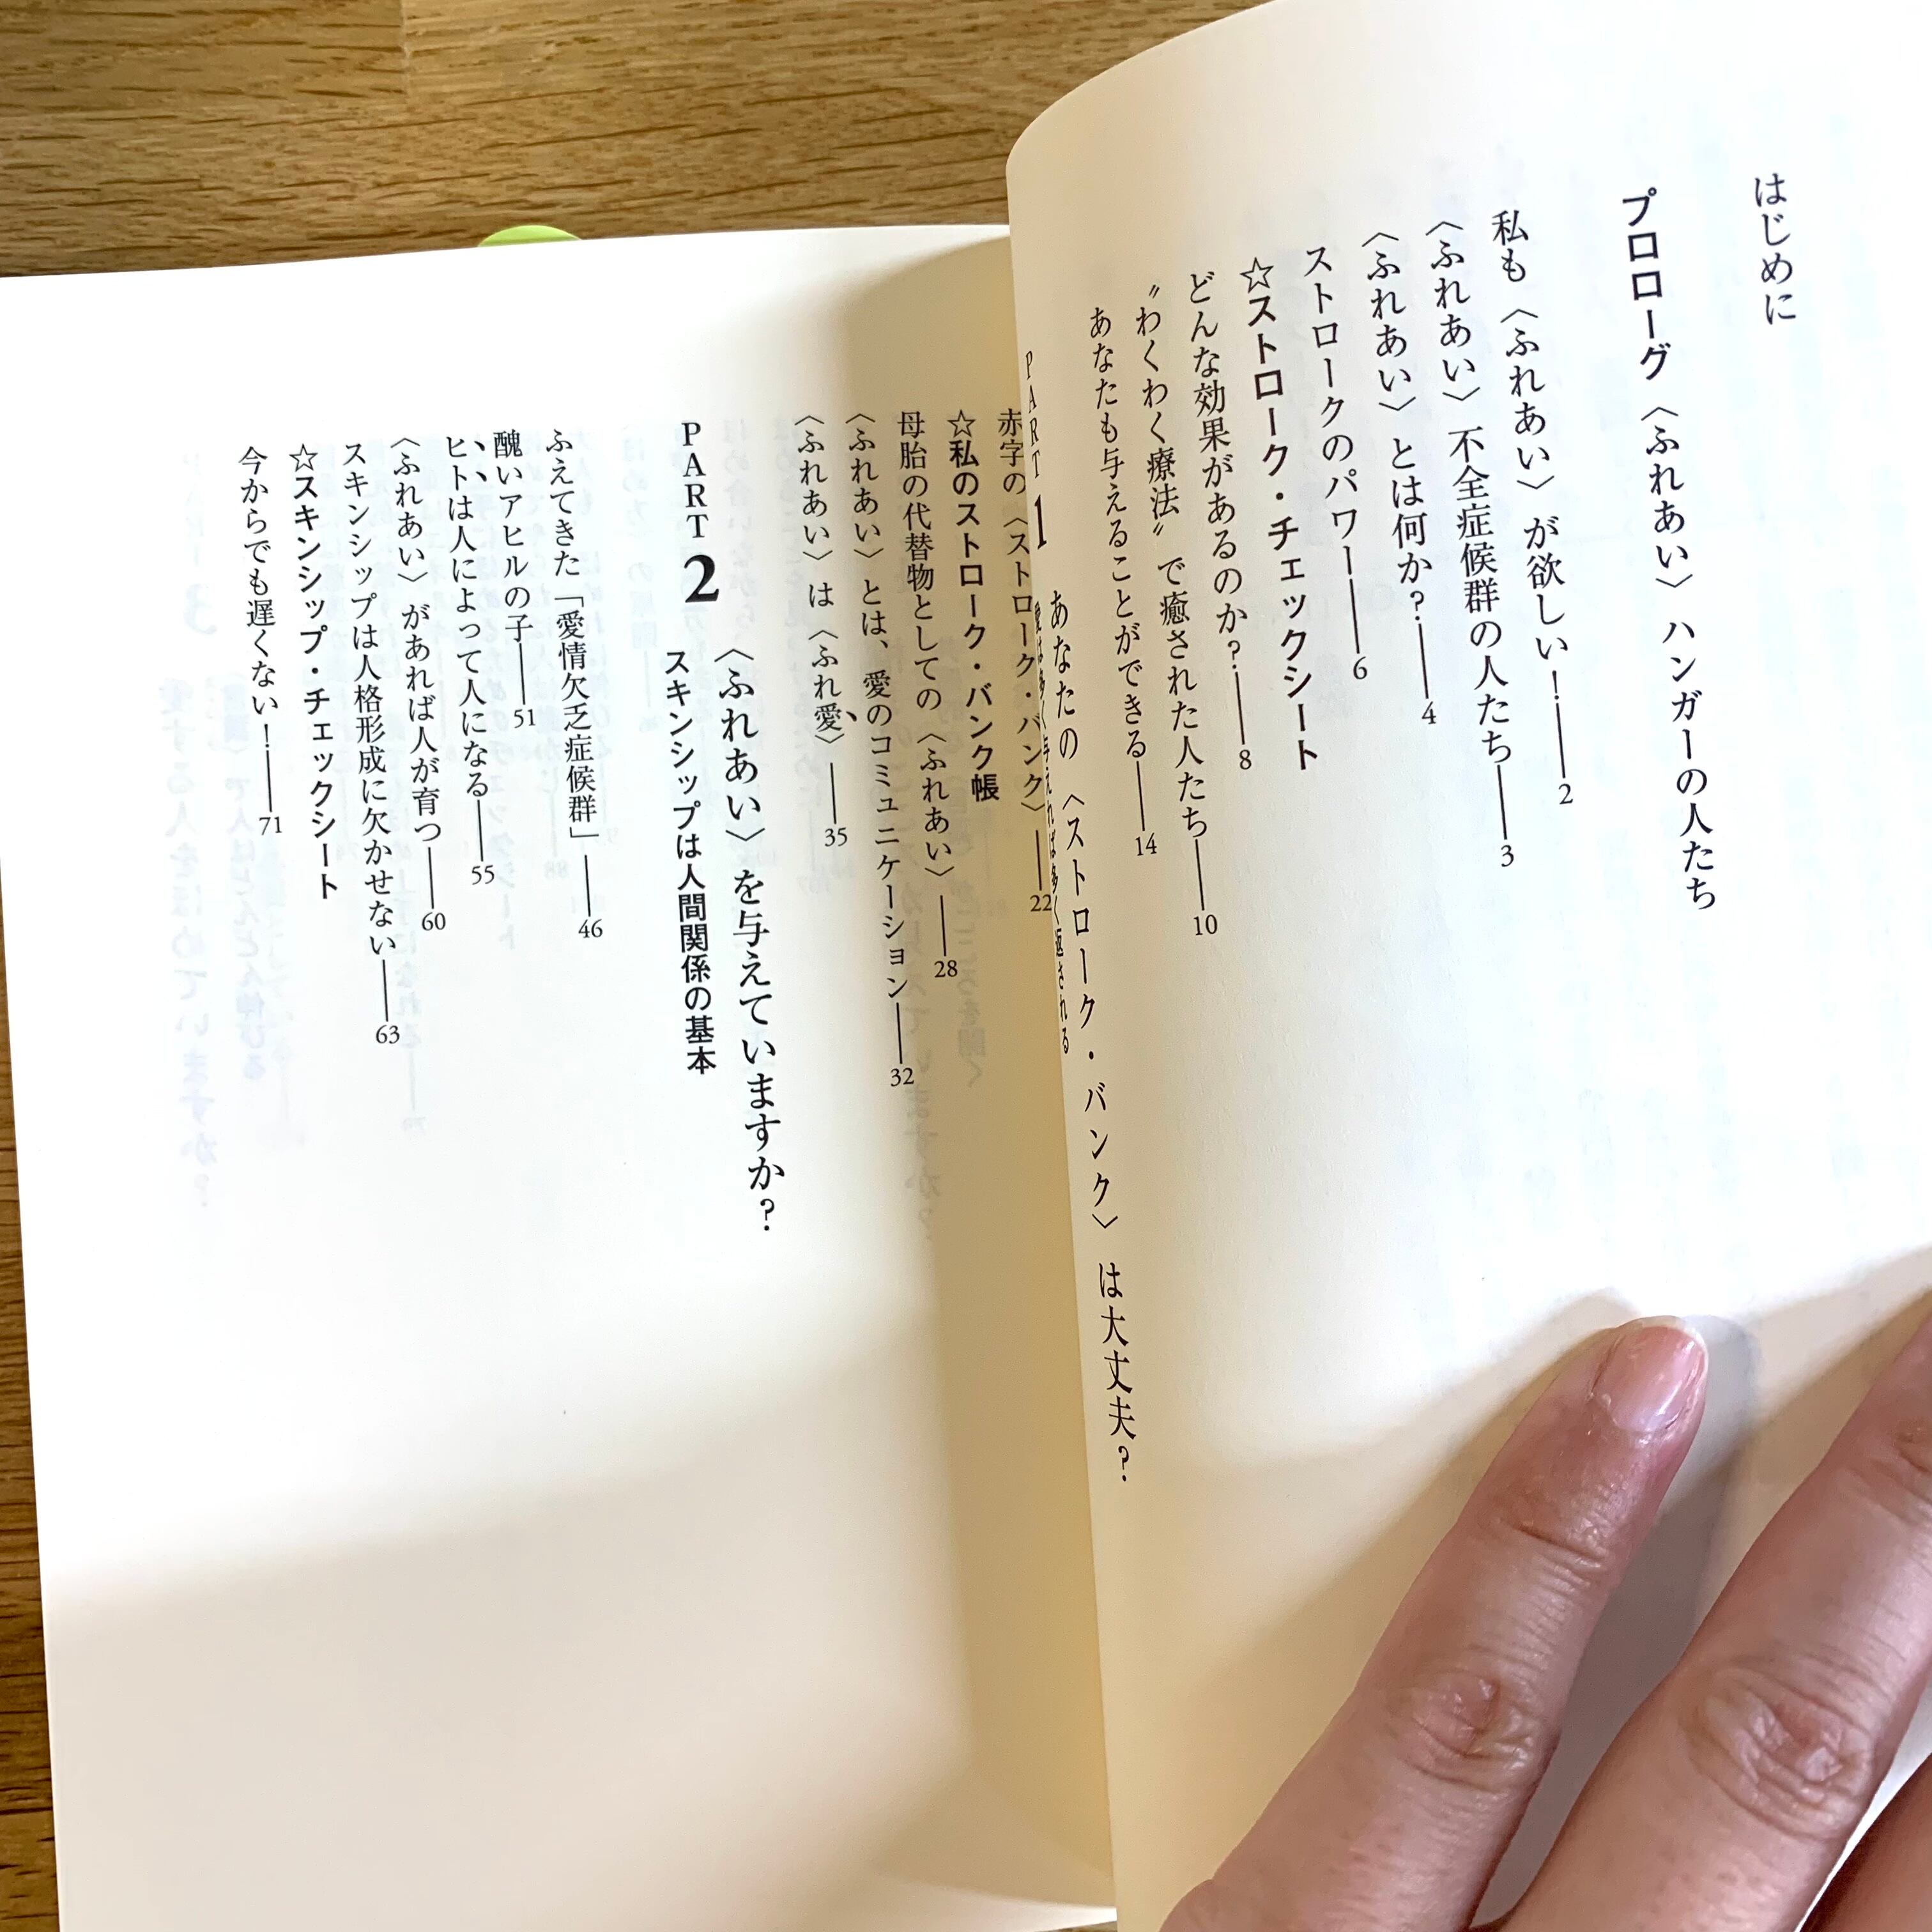 はじめに
プロローグ 〈ふれあい〉ハンガーの人たち
私も〈ふれあい〉が欲しい！——2
〈ふれあい〉不全症候群の人たち——3
〈ふれあい〉とは何か？——4
ストロークのパワー——6
☆ストローク・チェックシート
どんな効果があるのか？——8
〝わくわく療法〟で癒された人たち——10
あなたも与えることができる——14
PART 1 あなたの〈ストローク・バンク〉は大丈夫？
愛は多く与えれば多く返される
赤字の〈ストローク・バンク〉——22
☆私のストローク・バンク帳
母胎の代替物としての〈ふれあい〉——28
〈ふれあい〉とは、愛のコミュニケーション——32
〈ふれあい〉は〈ふれ愛〉——35
PART 2 〈ふれあい〉を与えていますか？
スキンシップは人間関係の基本
ふえてきた「愛情欠乏症候群」——46
醜いアヒルの子——51
ヒトは人によって人になる——55
〈ふれあい〉があれば人が育つ——60
スキンシップは人格形成に欠かせない——63
☆スキンシップ・チェックシート
今からでも遅くない！——71